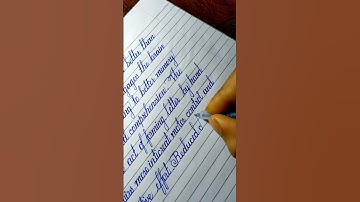 better than
gages the brain
ing to better memory
d comprehension. The
act of forming letter by hand
uires more intricate motor control and
tive effort. Reduced